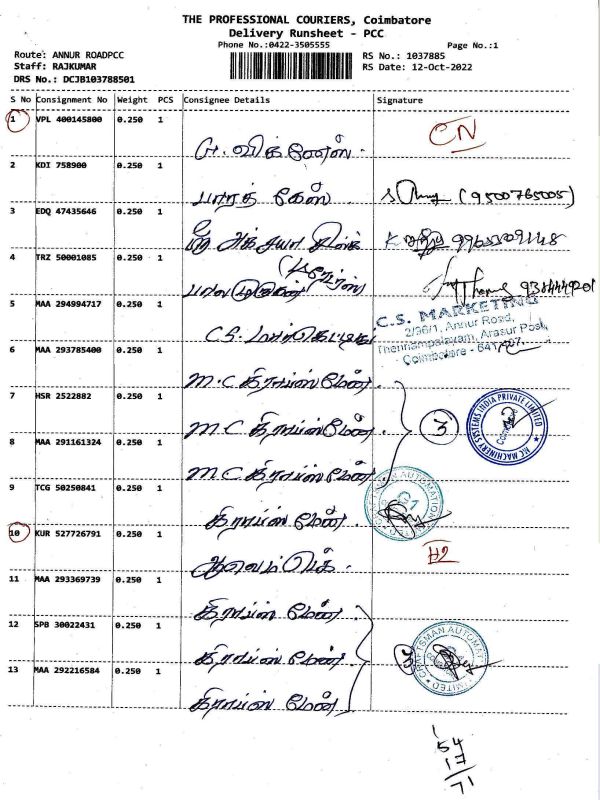 THE PROFESSIONAL COURIERS, Coimbatore
Delivery Runsheet - PCC
Phone No.:0422-3505555 Page No.:1
Route: ANNUR ROADPCC RS No.: 1037885
Staff: RAJKUMAR RS Date: 12-Oct-2022
DRS No.: DCJB103788501
S No Consignment No Weight PCS Consignee Details Signature
1 VPL 400145800 0.250 1 CN
2 KDI 758900 0.250 1 (9500765005)
3 EDQ 47435646 0.250 1
4 TRZ 50001085 0.250 1
5 MAA 294994717 0.250 1 C.S. மார்கெட்டிங்
C.S. MARKETING
2/96/1, Annur Road,
Thennampalayam, Arasur Post,
Coimbatore - 641 407.
6 MAA 293785400 0.250 1 M.C கிராப்ஸ்மேன்.
7 HSR 2522882 0.250 1 M C கிராப்ஸ்மேன். 3
MC MACHINERY SYSTEMS INDIA PRIVATE LIMITED
8 MAA 291161324 0.250 1 M C கிராப்ஸ்மேன்
9 TCG 50250841 0.250 1 கிராப்ஸ் மேன்.
CRAFTSMAN AUTOMATION
10 KUR 527726791 0.250 1 H2
11 MAA 293369739 0.250 1 கிராப்ஸ் மேன்.
12 SPB 30022431 0.250 1 கிராப்ஸ் மேன். 3
CRAFTSMAN AUTOMATION LIMITED
13 MAA 292216584 0.250 1 கிராப்ஸ் மேன்.
54
17
71